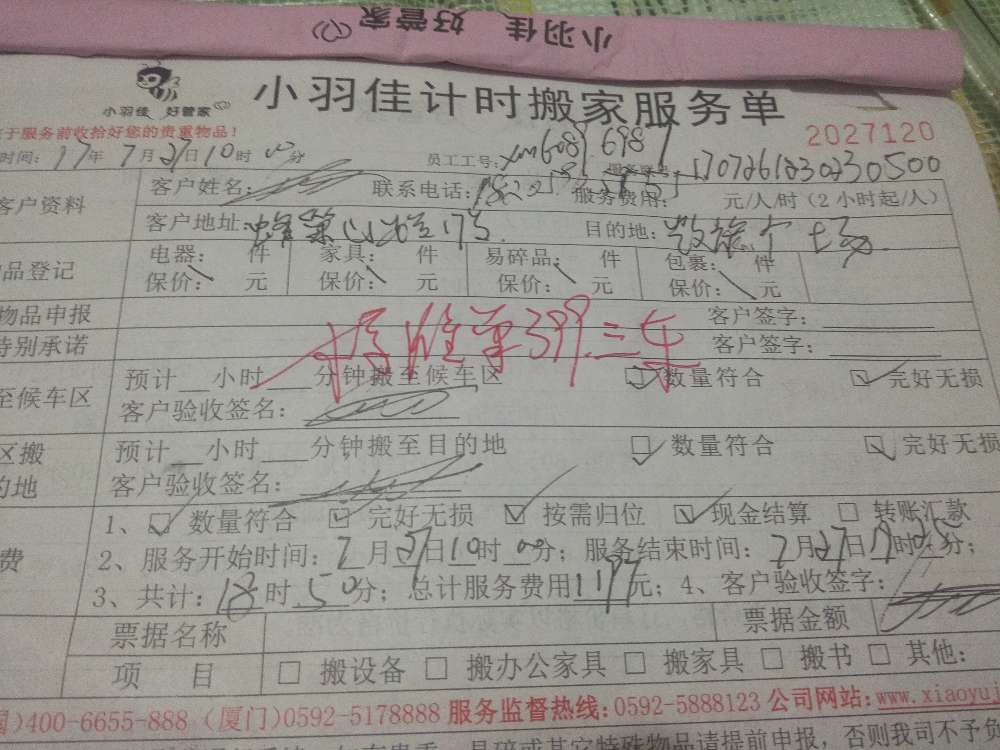 小羽佳 好管家
小羽佳 好管家
小羽佳计时搬家服务单
于服务前收拾好您的贵重物品！
2027120
时间：17年7月27日10时00分 员工工号：xm6089.6987 170726183023050
客户资料 客户姓名： 联系电话： 服务费用： 元/人/时（2小时起/人）
客户地址： 目的地：
品登记 电器： 件 家具： 件 易碎品： 件 包裹： 件
保价： 元 保价： 元 保价： 元 保价： 元
物品申报 客户签字：
特别承诺 客户签字：
单399.三车
至候车区 预计 小时 分钟搬至候车区 数量符合 完好无损
客户验收签名：
区搬 预计 小时 分钟搬至目的地 数量符合 完好无损
的地 客户验收签名：
费 1、 数量符合 完好无损 按需归位 现金结算 转账汇款
2、服务开始时间：7月27日10时00分；服务结束时间：7月27日 时 分；
3、共计：18时50分；总计服务费用1197元；4、客户验收签字：
票据名称 票据金额
项 目 搬设备 搬办公家具 搬家具 搬书 其他：
)400-6655-888（厦门）0592-5178888 服务监督热线：0592-5888123 公司网站：www.xiaoyuj
易碎或其它特殊物品请提前申报，否则我司不予负